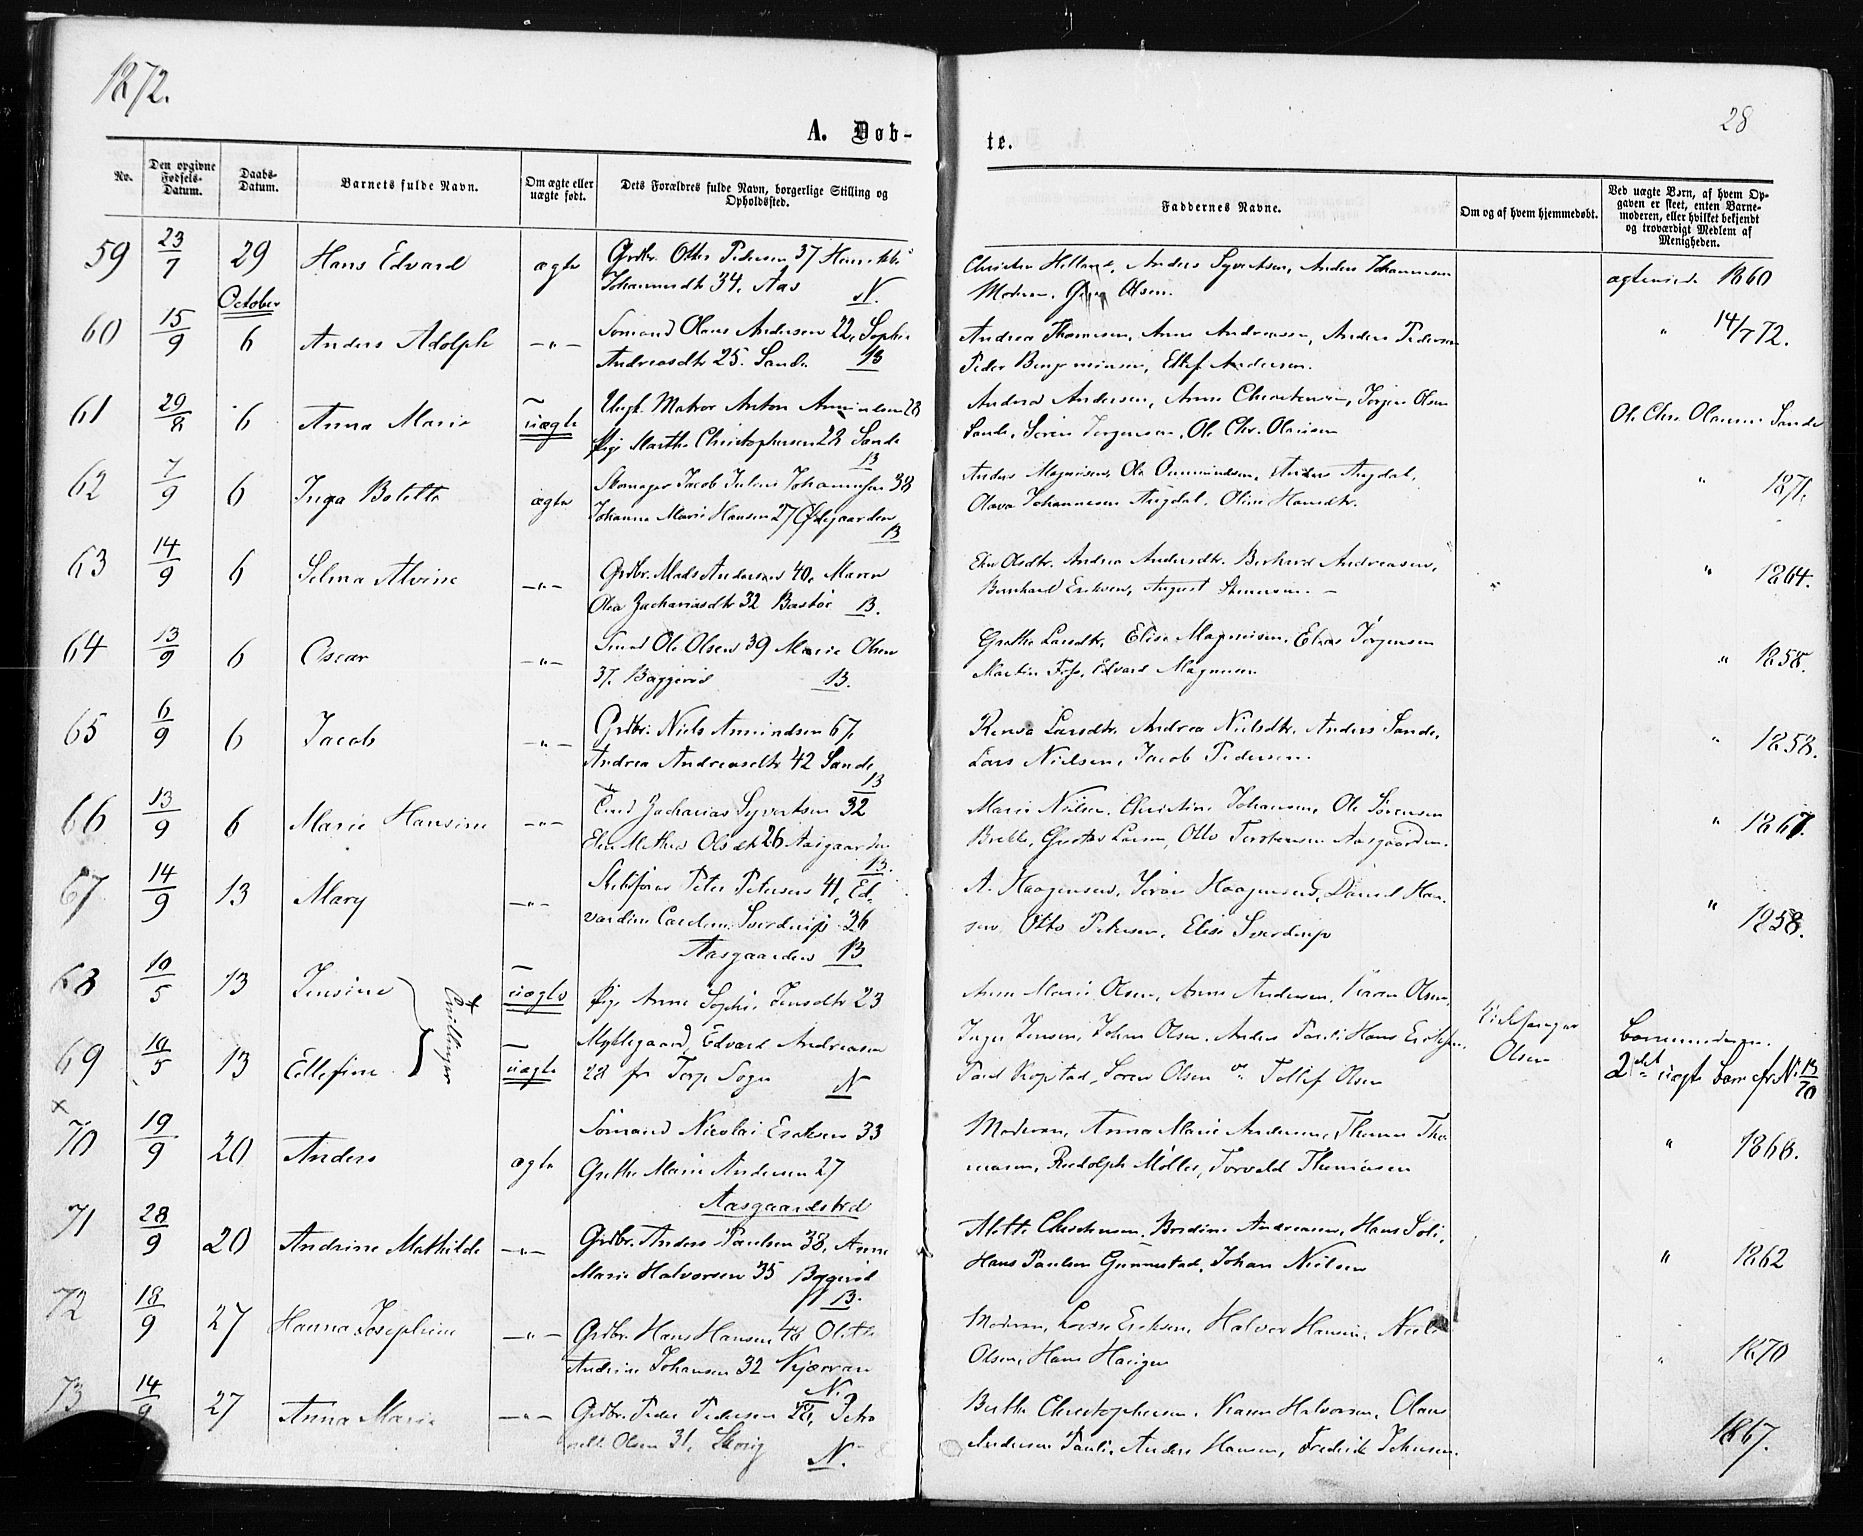 1872.
28
A. Døb-
te.
No.
Den opgivne Fødsels-Datum.
Daabs-Datum.
Barnets fulde Navn.
Om ægte eller uægte født.
Dets Forældres fulde Navn, borgerlige Stilling og Opholdssted.
Faddernes Navne.
Om og af hvem hjemmedøbt.
Ved uægte Børn, af hvem Opgaven er skeet, enten Barnemoderen, eller hvilket bekjendt og troværdigt Medlem af Menigheden.
59 23/7 29 Hans Edvard ægte Grdbr. Otter Pedersen 37
Johannesdtr 34. Aas N.
Anders Syvertsen, Anders Johannesen
Moderen, Olsen.
1860
October
60 15/9 6 Anders Adolph —„— Sømand Olaus Andersen 22, Sophie
Andreasdtr 25. Sande B
Andrea Thomesen, Anne Andreassen, Anders Pedersen
Peder Benjaminsen, Ellef Andersen.
„ 14/7 72.
61 29/8 6 Anna Marie uægte Ungk. Matros Anton Amundsen 28
Pige Marthe Christophersen 28 Sande
B
Andrea Andersen, Anne Christensen, Jørgen Olsen
Sande, Søren Jørgensen, Ole Chr. Olausen
Ole Chr. Olausen Sande
62 7/9 6 Inga Bolette ægte Skomager Jacob Julius Johannesen 38
Johanne Marie Hansen 27 Ødegaarden
B
Anders Magnusen, Ole Amundsen, Anders Augdal,
Olava Johannesen Augdal, Oline Hansdtr.
„ 1871.
63 14/9 6 Selma Alvine —„— Grdbr. Mads Andersen 40, Maren
Olea Zachariasdtr 32 Bastøe B.
Olsdtr. Andrea Andersdtr. Berhard Andreasen,
Bernhard Eriksen, August
„ 1864.
64 13/9 6 Oscar —„— Smed Ole Olsen 39 Marie Olsen
37. Baggerød B.
Grethe Larsdtr, Elise Magnusen, Elias Jørgensen
Martin Foss, Edvard Magnusen
„ 1858.
65 6/9 6 Jacob —„— Grdbr. Niels Amundsen 67,
Andrea Andreasdtr 42 Sande
B
Larsdtr. Andrea Nielsdtr. Anders Sande,
Lars Nielsen, Jacob Pedersen.
„ 1858.
66 13/9 6 Marie Hansine —„— Zacharias Syvertsen 32
Olsdtr 26 Aasgaarden
B.
Marie Nielsen, Christine Johansen, Ole Sørensen
Brekke, Gustav Larsen, Otto Torstensen Aasgaarden.
„ 1867.
67 14/9 13 Mary —„— Skibsfører Peter Petersen 41, Ed-
vardine Caroline Sverdrup 36
Aasgaarden B
A. Haagensen, Haagensen, Daniel Han-
sen, Otto Petersen, Elise Sverdrup
„ 1858.
68 10/5 13 Jensine Tvillinger uægte Pige Anne Sophie Jensdtr 23
Anne Marie Olsen, Anne Andersen, Karen Olsen,
Kirkesanger
69 10/5 13 Ellefine uægte Myllegaard, Edvard Andreasen
28 fr Torp Sogn N
Inger Jensen, Johan Olsen, Anders Pauli, Hans Eriksen.
Paul Kopstad, Søren Olsen og Tollef Olsen
Olsen
Barnemoderen.
2det uægte Barn cfr. N: 13/70
x
70 19/9 20 Anders ægte Sømand Nicolai Eriksen 33
Grethe Marie Andersen 27
Aasgaardstrand
Moderen, Anna Marie Andersen, Thomas Tho-
masen, Rudolph Møller, Torvald Thomasen
„ 1868.
71 28/9 20 Andrine Mathilde —„— Grdbr. Anders Paulsen 38, Anne
Marie Halvorsen 35 Byggerød
B.
Mette Christensen, Bredine Andreasen, Hans Soli,
Hans Paulsen Gunnestad, Johan Nielsen
„ 1862
72 18/9 27 Hanna Josephine —„— Grdbr. Hans Hansen 48
Andrine Johansen 32 Kjærran
N.
Moderen, Lovise Eriksen, Halvor Hansen, Niels
Olsen, Hans Haugen
„ 1870
73 14/9 27 Anna Marie —„— Grdbr. Peder Pedersen Petro
nelle Olsen 31, Skovg N.
Berthe Christophersen, Karen Halvorsen, Olaus
Andersen Pauli, Anders Hansen, Fredrik Johnsen.
1867.